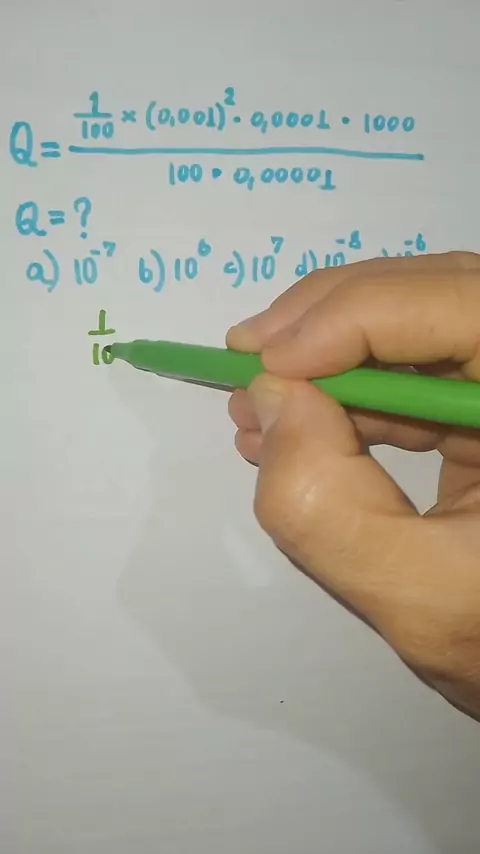 Q = 1/100 × (0,001)² · 0,0001 · 1000 / 100 · 0,00001
Q = ?
a) 10⁻⁷ b) 10⁶ c) 10⁷ d) 10⁻⁸ ) 10⁻⁶
1/10